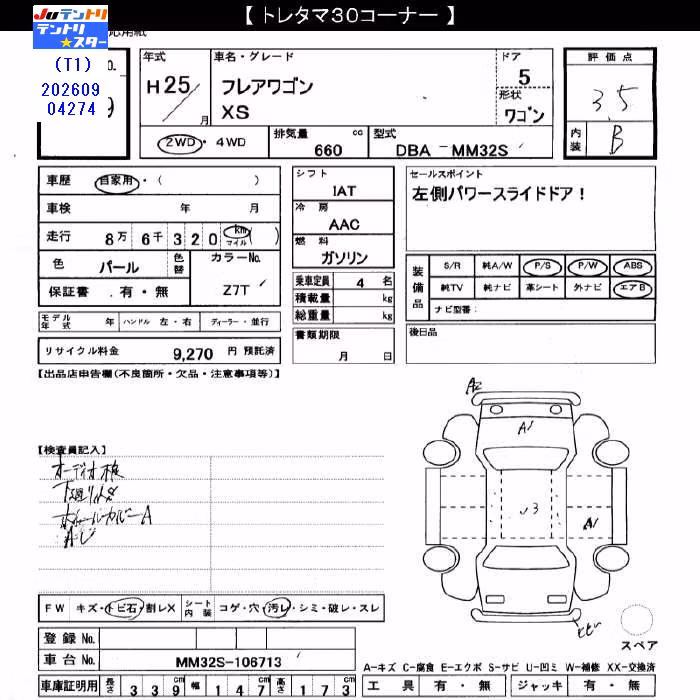 【 トレタマ30コーナー 】
Juテントリ
テントリ★スター
応用紙
(T1)
202609
04274
No.
9
年式
H25/
月
車名・グレード
フレアワゴン
XS
ドア
5
形状
ワゴン
評価点
3.5
内装
B
2WD・4WD
排気量 cc
660
型式
DBA －MM32S
車歴 自家用・( )
車検 年 月
走行 8万 6千 3 2 0 km マイル ( )
色 パール 色替
カラーNo.
Z7T
保証書 有・無
シフト
IAT
冷房
AAC
燃料
ガソリン
乗車定員 4 名
積載量 kg
総重量 kg
書類期限
月 日
セールスポイント
左側パワースライドドア！
装備品
S/R 純A/W P/S P/W ABS
純TV 純ナビ 革シート 外ナビ エアB
ナビ型番：
後日品
モデル年式 年 ハンドル 左・右 ディーラー・並行
リサイクル料金 9,270 円 預託済
【出品店申告欄(不良箇所・欠品・注意事項等)】
【検査員記入】
オーディオ欠
ホイールカバーA
A2
A1
3
A1
FW キズ・トビ石・割レX
シート内装 コゲ・穴・汚レ・シミ・破レ・スレ
登録 No.
車台 No. MM32S-106713
車庫証明用 長さ 3 3 9 cm 幅 1 4 7 cm 高さ 1 7 3 cm
スペア
A-キズ C-腐食 E-エクボ S-サビ U-凹ミ W-補修 XX-交換済
工具 有・無 ジャッキ 有・無